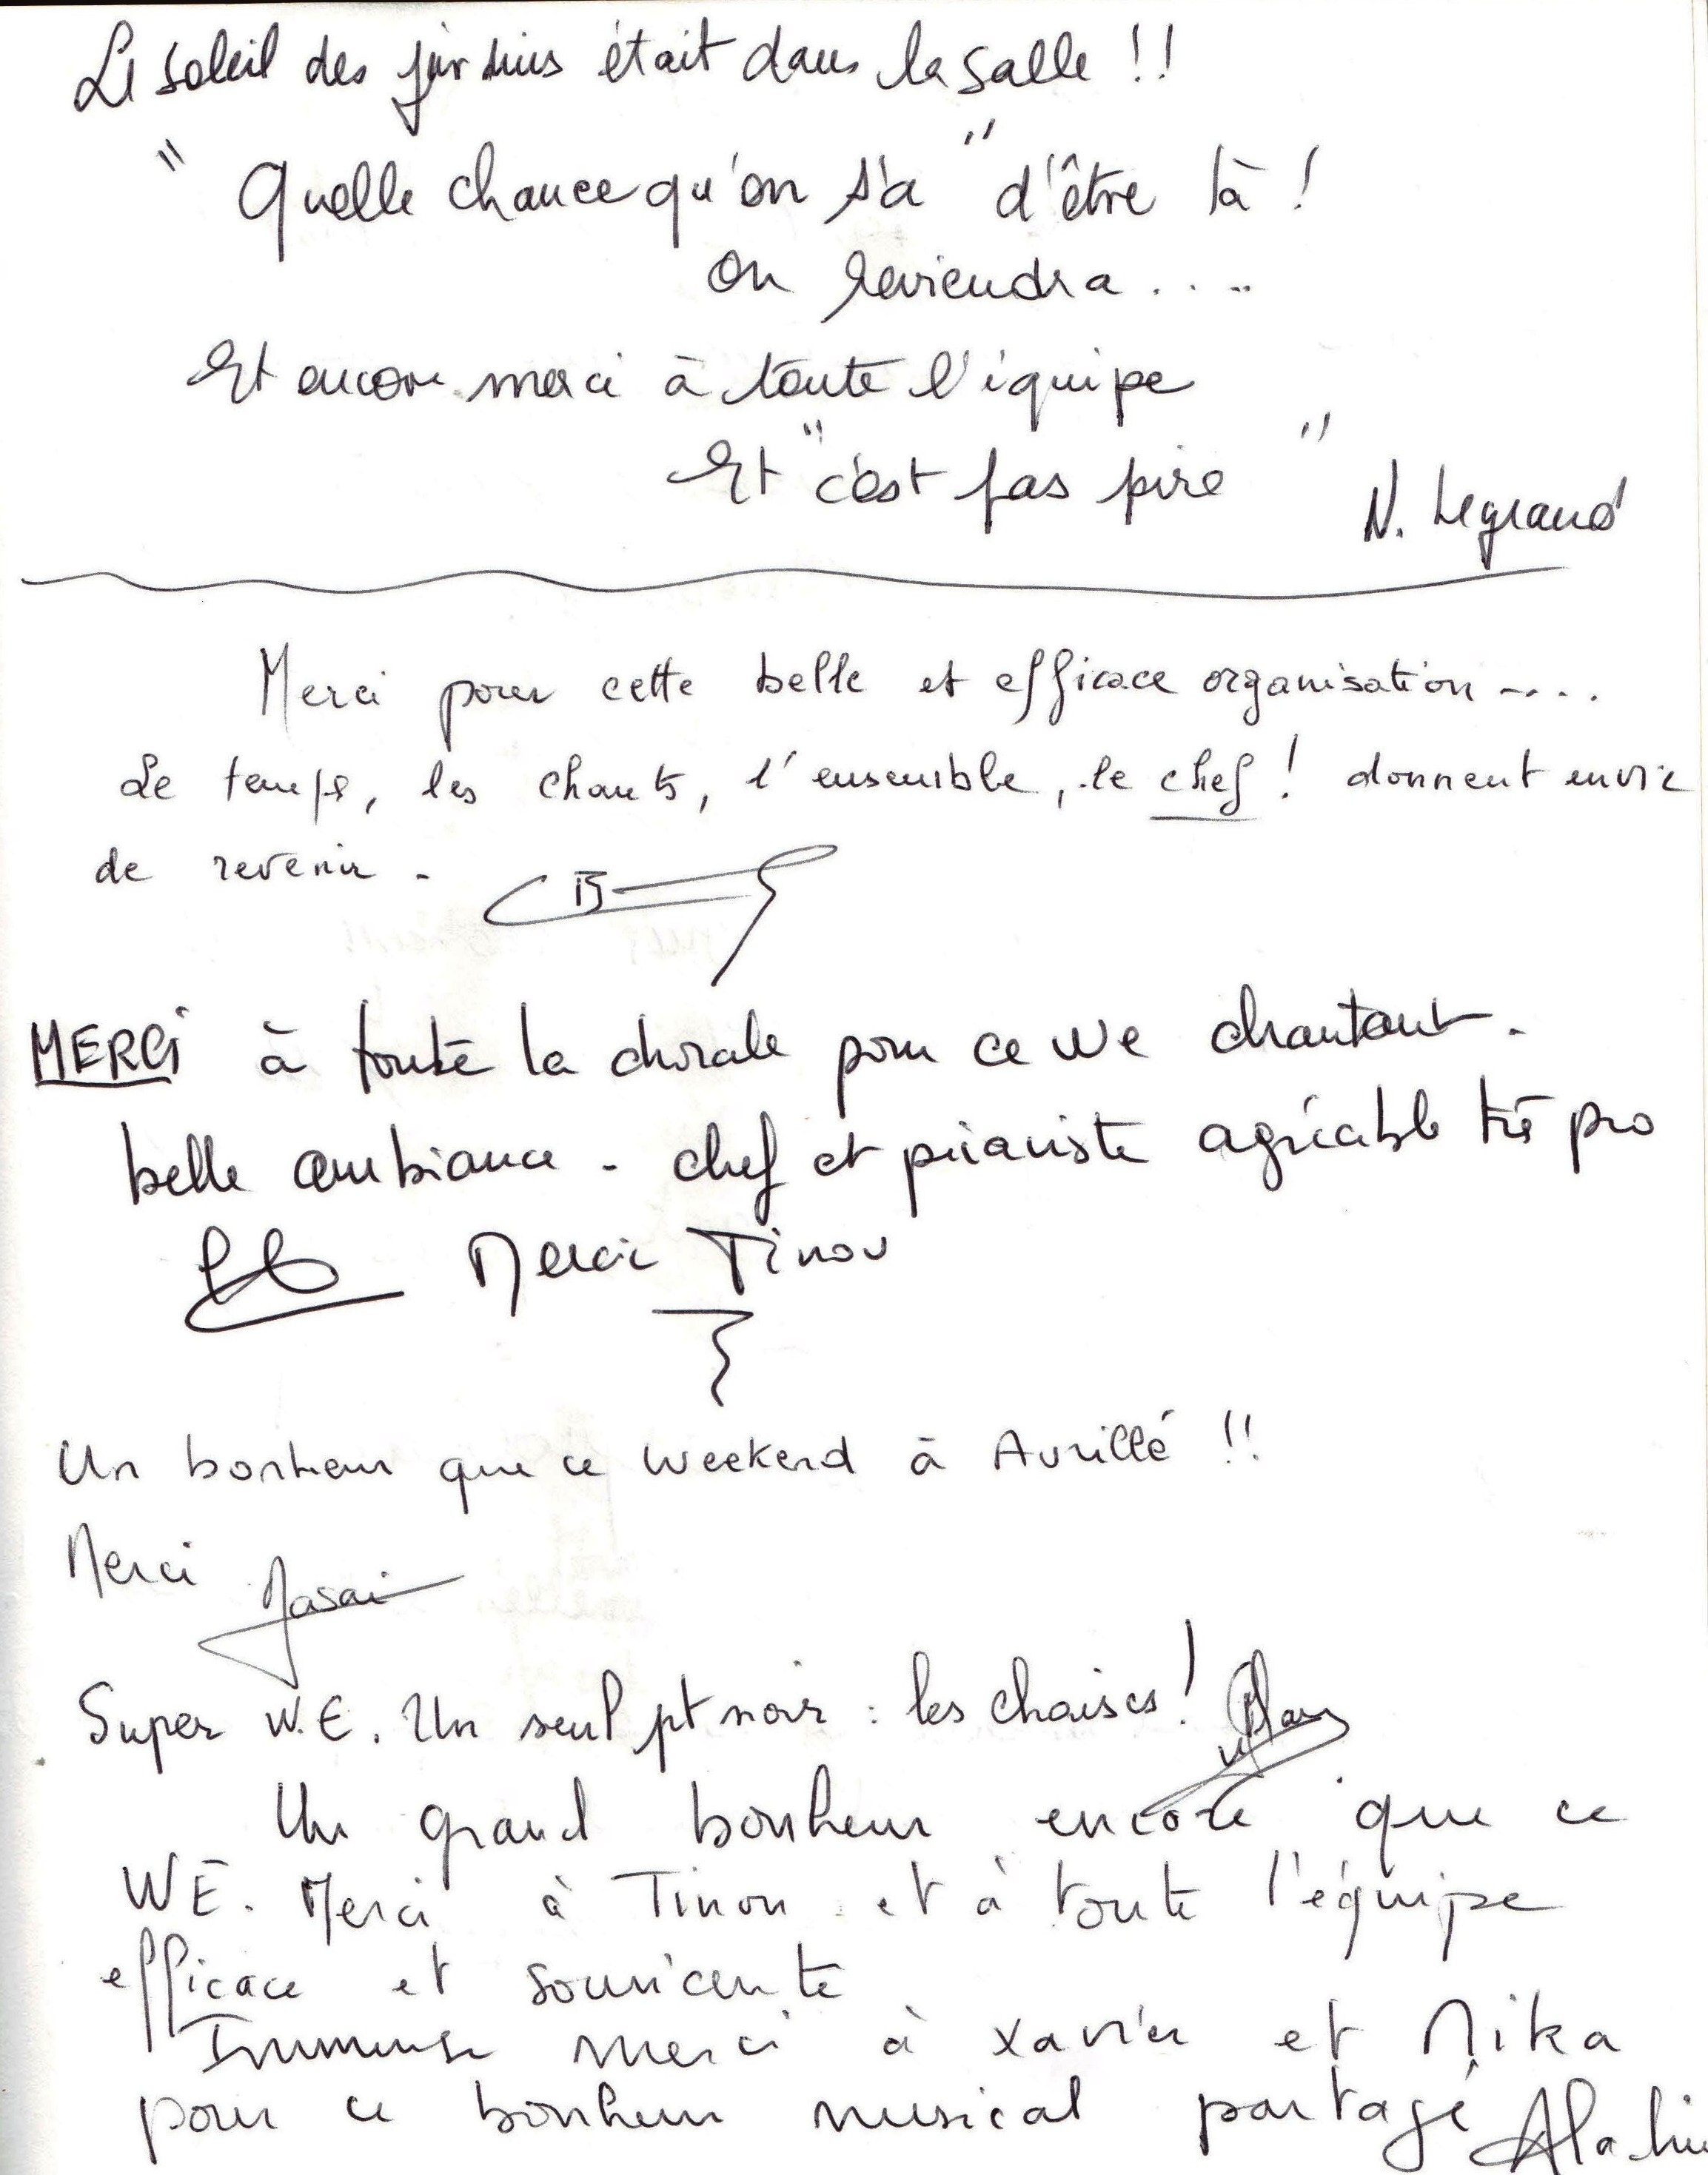 Le soleil des jardins était dans la salle !!
" Quelle chance qu'on s'a " d'être là !
On reviendra ....
Et encore merci à toute l'équipe
Et "c'est pas pire" N. Legrand
Merci pour cette belle et efficace organisation ....
Le temps, les chants, l'ensemble, le chef ! donnent envie
de revenir -
MERCI à toute la chorale pour ce We chantant.
belle ambiance - chef et pianiste agréable très pro
Merci Tinou
Un bonheur que ce weekend à Avrillé !!
Merci
Super W.E. Un seul pt noir : les chaises !
Un grand bonheur encore que ce
WE. Merci à Tinou et à toute l'équipe
efficace et souriante
Immense merci à Xavier et Mika
pour ce bonheur musical partagé